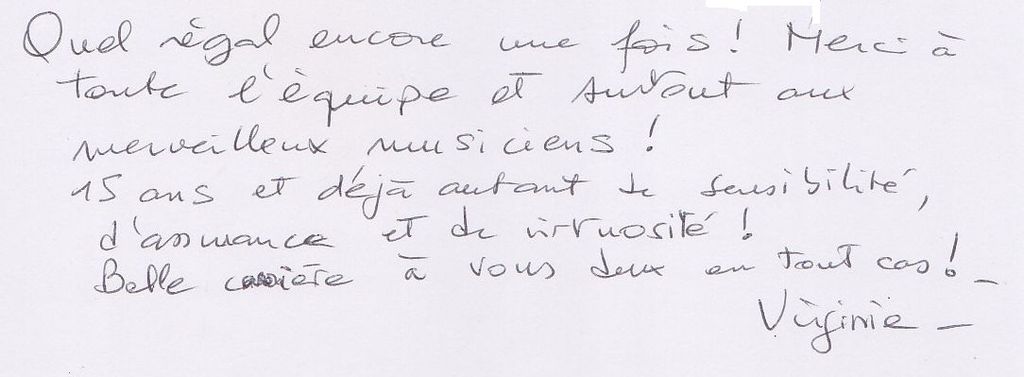 Quel régal encore une fois ! Merci à
toute l'équipe et surtout aux
merveilleux musiciens !
15 ans et déjà autant de sensibilité,
d'assurance et de virtuosité !
Belle carrière à vous deux en tout cas ! _
Virginie _